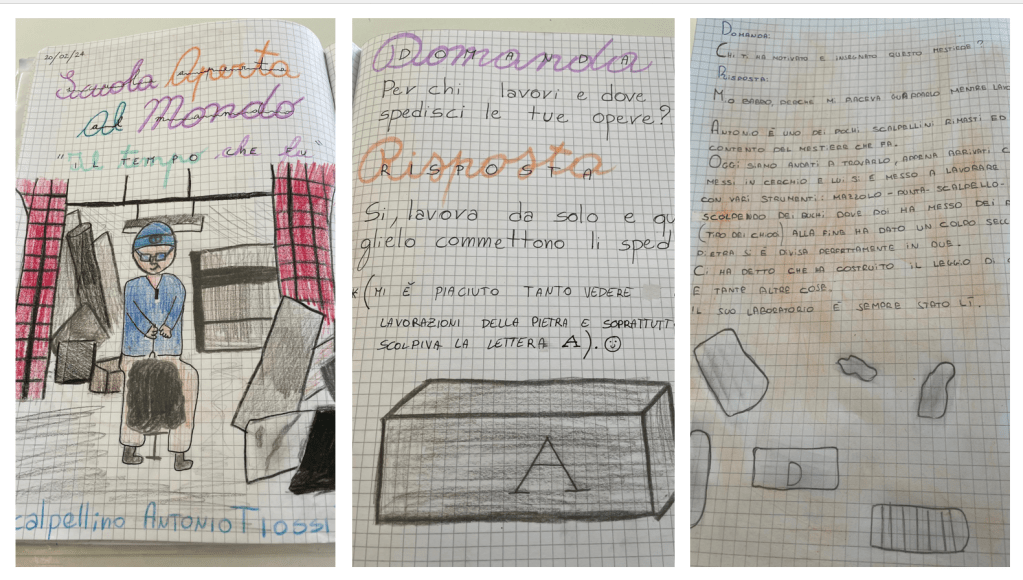 20/02/24
Scuola Aperta
al Mondo
"Il tempo che fu"
scalpellino ANTONIO TIOSSI
Domanda
DOMANDA
Per chi lavori e dove
spedisci le tue opere?
Risposta
RISPOSTA
Si, lavora da solo e qu
glielo commettono li sped
(MI È PIACIUTO TANTO VEDERE
LAVORAZIONI DELLA PIETRA E SOPRATTUTT
SCOLPIVA LA LETTERA A). ☺
A
DOMANDA:
CHI TI HA MOTIVATO E INSEGNATO QUESTO MESTIERE?
RISPOSTA:
MIO BABBO, PERCHÈ MI PIACEVA GUARDARLO MENTRE LAVO
ANTONIO È UNO DEI POCHI SCALPELLINI RIMASTI ED
CONTENTO DEL MESTIERE CHE FA.
OGGI SIAMO ANDATI A TROVARLO, APPENA ARRIVATI C
MESSI IN CERCHIO E LUI SI È MESSO A LAVORARE
CON VARI STRUMENTI: MAZZOLO - PUNTA - SCALPELLO -
SCOLPENDO DEI BUCHI DOVE POI HA MESSO DEI P
(TIPO DEI CHIODI) ALLA FINE HA DATO UN COLPO SECC
PIETRA SI È DIVISA PERFETTAMENTE IN DUE.
CI HA DETTO CHE HA COSTRUITO IL LEGGIO DI
E TANTE ALTRE COSE.
IL SUO LABORATORIO È SEMPRE STATO LÌ.
D